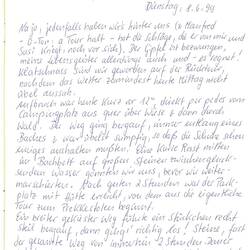 Dienstag, 8.6.93
Na ja, jedenfalls haben wir's hinter uns (o Manfred
Tour halt - hat die Schläge, die er von mir und
Susi kriegt noch vor sich). Der Gipfel ist bezwungen,
meines Lebensgeister allerdings auch und - es regnet!
Klatschnass sind wir geworden auf der Rückkehr,
nachdem das Wetter zumindest heute Mittag nicht
übel aussah.
Aufbruch war heute kurz vor 12°°, direkt per pedes vom
Campingplatz aus quer über Wiese dann durch
Wald. Der Weg ging bergauf, immer entlang eines
Baches z war sumpfig, so daß die Schuhe schon
einiges aushalten mußten. Eine kurze Rast mitten
im Bachbett auf großen Steinen zwischen
Wasser gönnten wir uns, bevor wir weiter-
marschierten. Nach guten 2 Stunden war der Park-
platz mit Hütte erreicht, von dem aus die eigentliche
Tour zum beginnt.
Ein breiter gekiester Weg führte ein Stückchen recht
steil bergauf, dann ging's richtig los! Steine, fast
der gesamte Weg von immerhin 2 Stunden Dauer